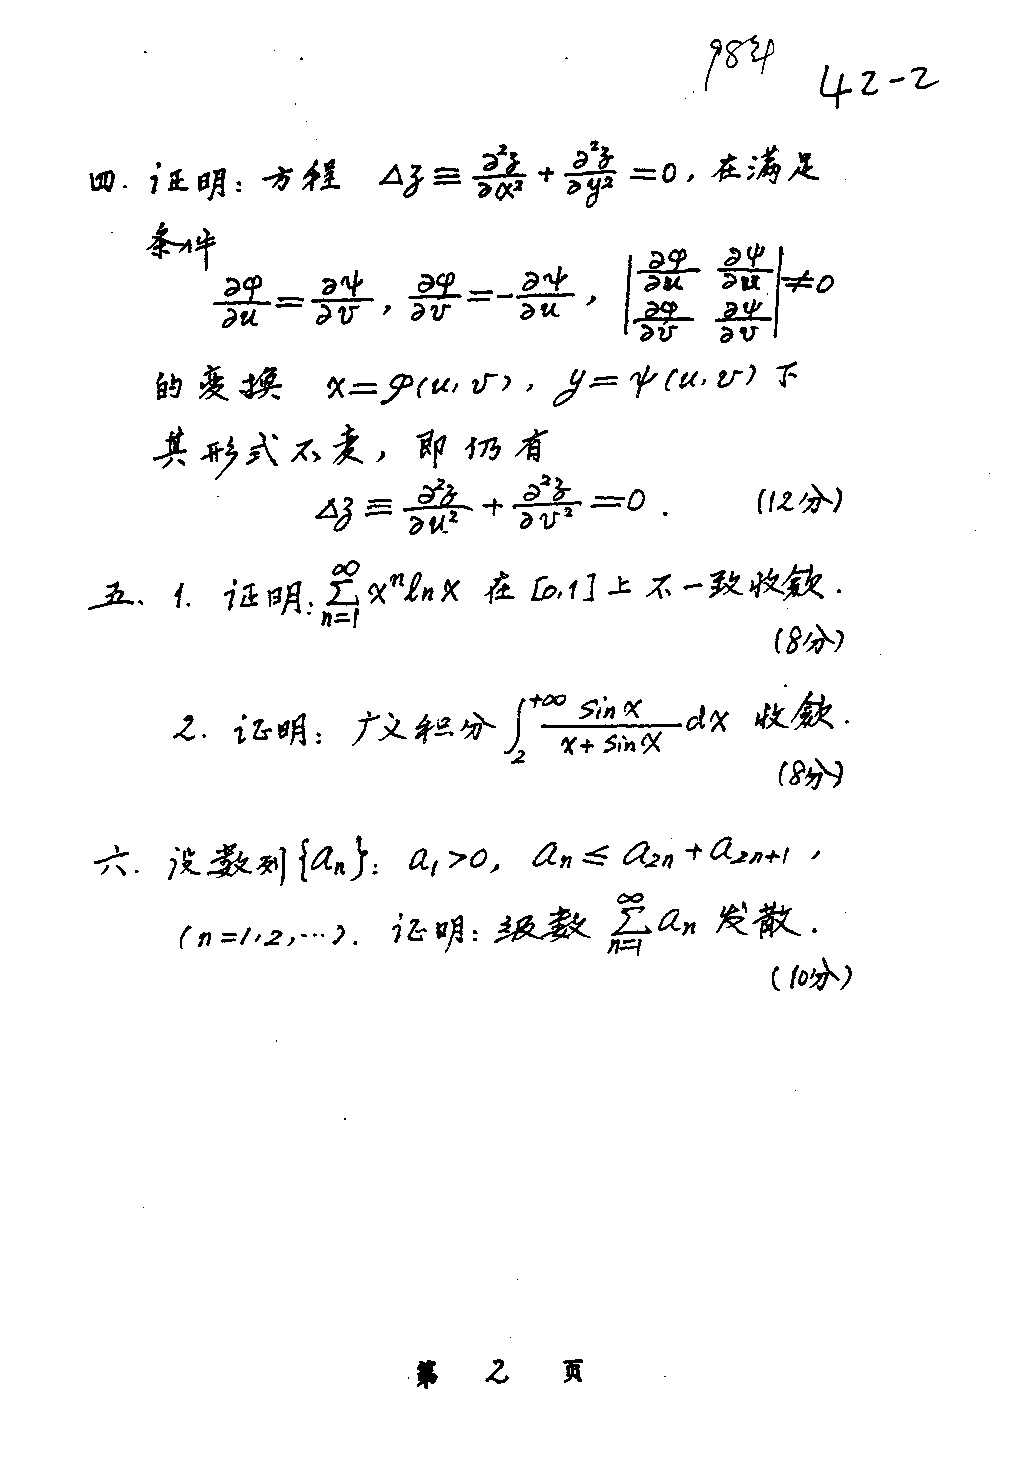 98年
42-2
四. 证明: 方程 Δz ≡ ∂²z/∂x² + ∂²z/∂y² = 0, 在满足
条件
∂φ/∂u = ∂ψ/∂v, ∂φ/∂v = -∂ψ/∂u, |∂φ/∂u ∂ψ/∂u; ∂φ/∂v ∂ψ/∂v| ≠ 0
的变换 x = φ(u, v), y = ψ(u, v) 下
其形式不变, 即仍有
Δz ≡ ∂²z/∂u² + ∂²z/∂v² = 0. (12分)
五、1. 证明: ∑_{n=1}^{∞} xⁿ ln x 在 [0,1] 上不一致收敛.
(8分)
2. 证明: 广义积分 ∫_2^{+∞} sin x/(x + sin x) dx 收敛.
(8分)
六. 设数列{a_n}: a_1 > 0, a_n ≤ a_{2n} + a_{2n+1},
(n=1,2,…). 证明: 级数 ∑_{n=1}^{∞} a_n 发散.
(10分)
第 2 页